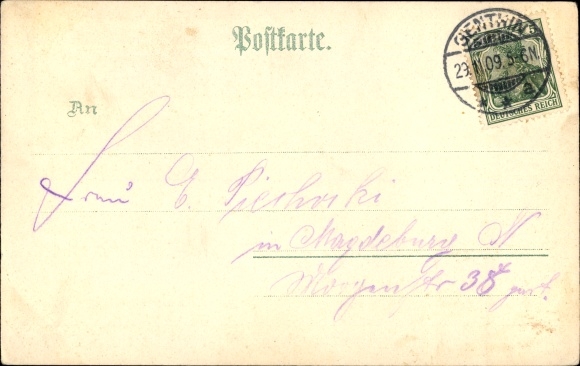 Postkarte.
GENTHIN
29.11.09. 5-6N
* * a
DEUTSCHES REICH
An
Frau E. Piechoski
in Magdeburg N
Morgenstr 38